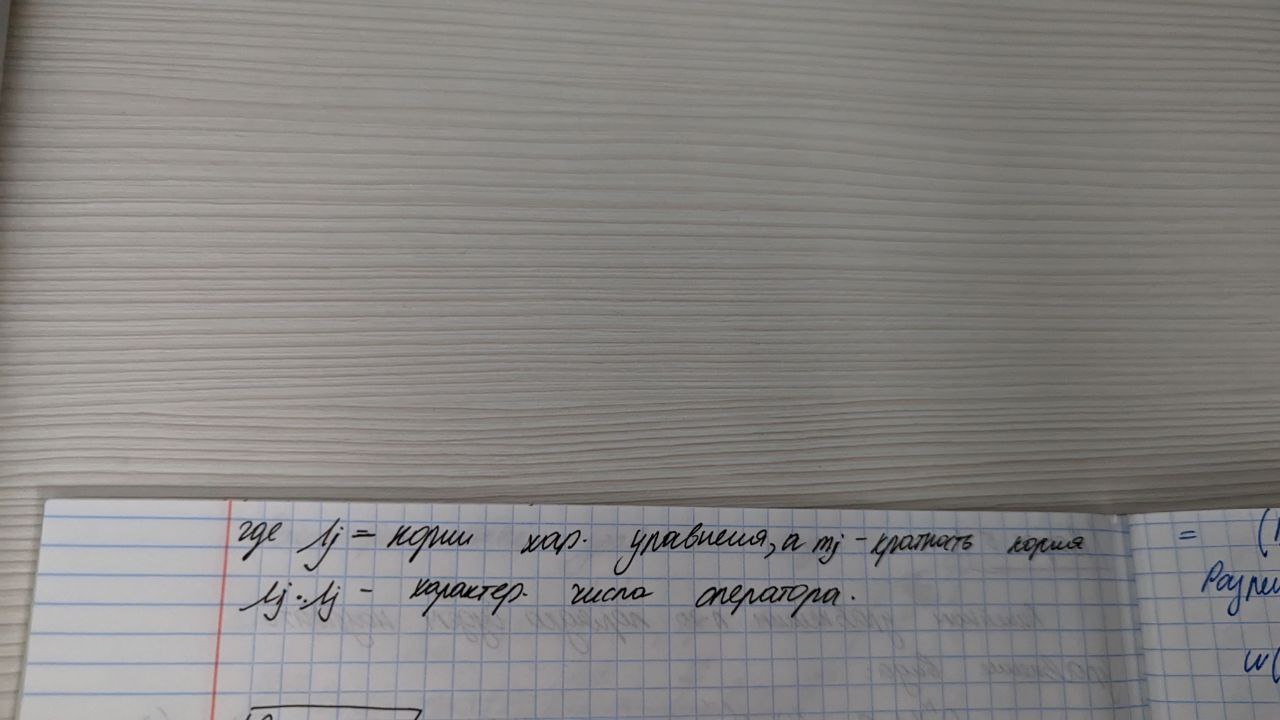 где λj = корни хар. уравнения, а mj - кратность корня
λj. λj - характер. числа оператора.
=